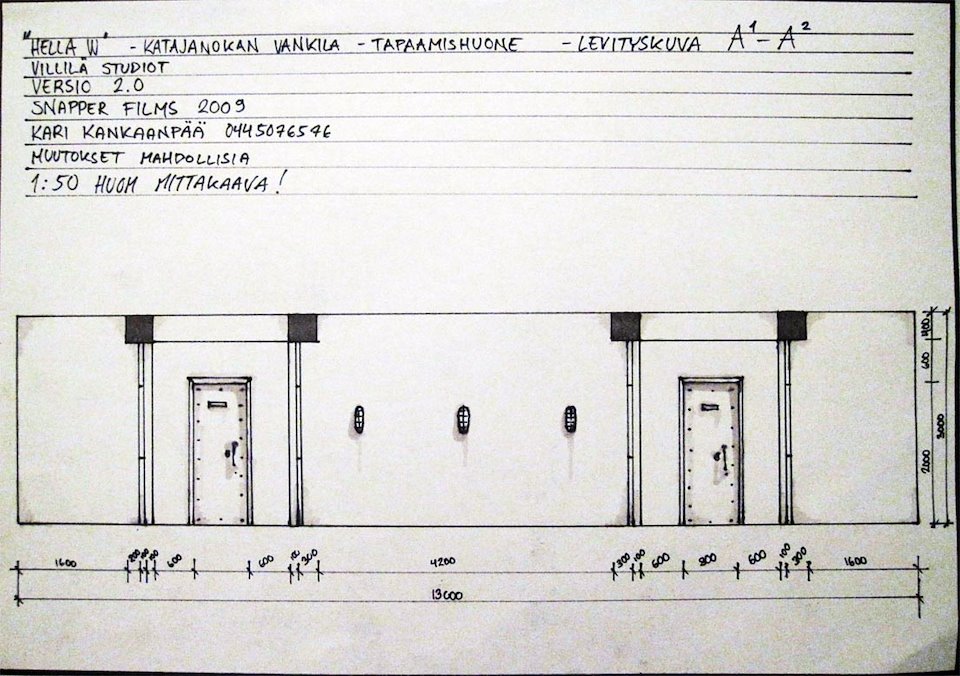 "HELLA W" - KATAJANOKAN VANKILA - TAPAAMISHUONE - LEVITYSKUVA A1 - A2
VILLILÄ STUDIOT
VERSIO 2.0
SNAPPER FILMS 2009
KARI KANKAANPÄÄ 0445076546
MUUTOKSET MAHDOLLISIA
1:50 HUOM MITTAKAAVA!
400
600
2000
3000
1600 200 100 100 600 600 100 300 4200 300 100 600 800 600 100 300 1600
13600